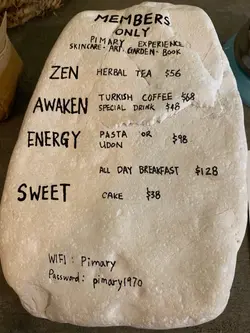 MEMBERS
ONLY
PIMARY EXPERIENCE
SKINCARE · ART · GARDEN · BOOK
ZEN HERBAL TEA $56
AWAKEN TURKISH COFFEE $68
SPECIAL DRINK $48
ENERGY PASTA OR
UDON $98
ALL DAY BREAKFAST $128
SWEET CAKE $38
WIFI : Pimary
Password : pimary1970